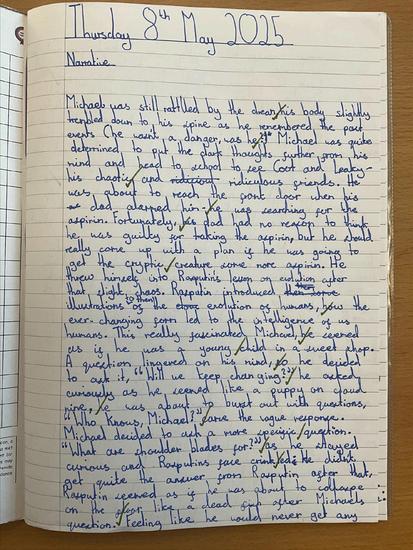 Thursday 8th May 2025
Narrative
Michael was still rattled by the dream, his body slightly
trembled down to his spine as he remembered the past
events (he wasn't a danger, was he?) Michael was quite
determined to put the dark thoughts further from his
mind and head to school to see Coot and Leaky-
his chaotic and ridicious ridiculous friends. He
was about to reach the front door when his
dad alarmed him- he was searching for the
aspirin. Fortunately, his dad had no reason to think
he was guilty for taking the aspirin, but he should
really come up with a plan is he was going to
get the cryptic creature some more aspirin. He
threw himself into Rasputins lesson on evolution after
that slight chaos. Rasputin introduced them some
illustrations to them of the evolution of humans, how the
ever-changing form led to the intelligence of us
humans. This really fascinated Michael, he seemed
as is he was a young child in a sweet shop.
A question lingered on his mind, so he decided
to ask it, "Will we keep changing?" he asked
curiously as he seemed like a puppy on cloud
nine, he was about to burst out with questions,
"Who knows, Michael?" came the vague response.
Michael decided to ask a more specific question.
"What are shoulder blades for?" as he stayed
curious and Rasputins face crinkled. He didn't
get quite the answer from Rasputin after that,
Rasputin seemed as if he was about to collapse
on the floor like a dead after Michaels
question. Feeling like he would never get any